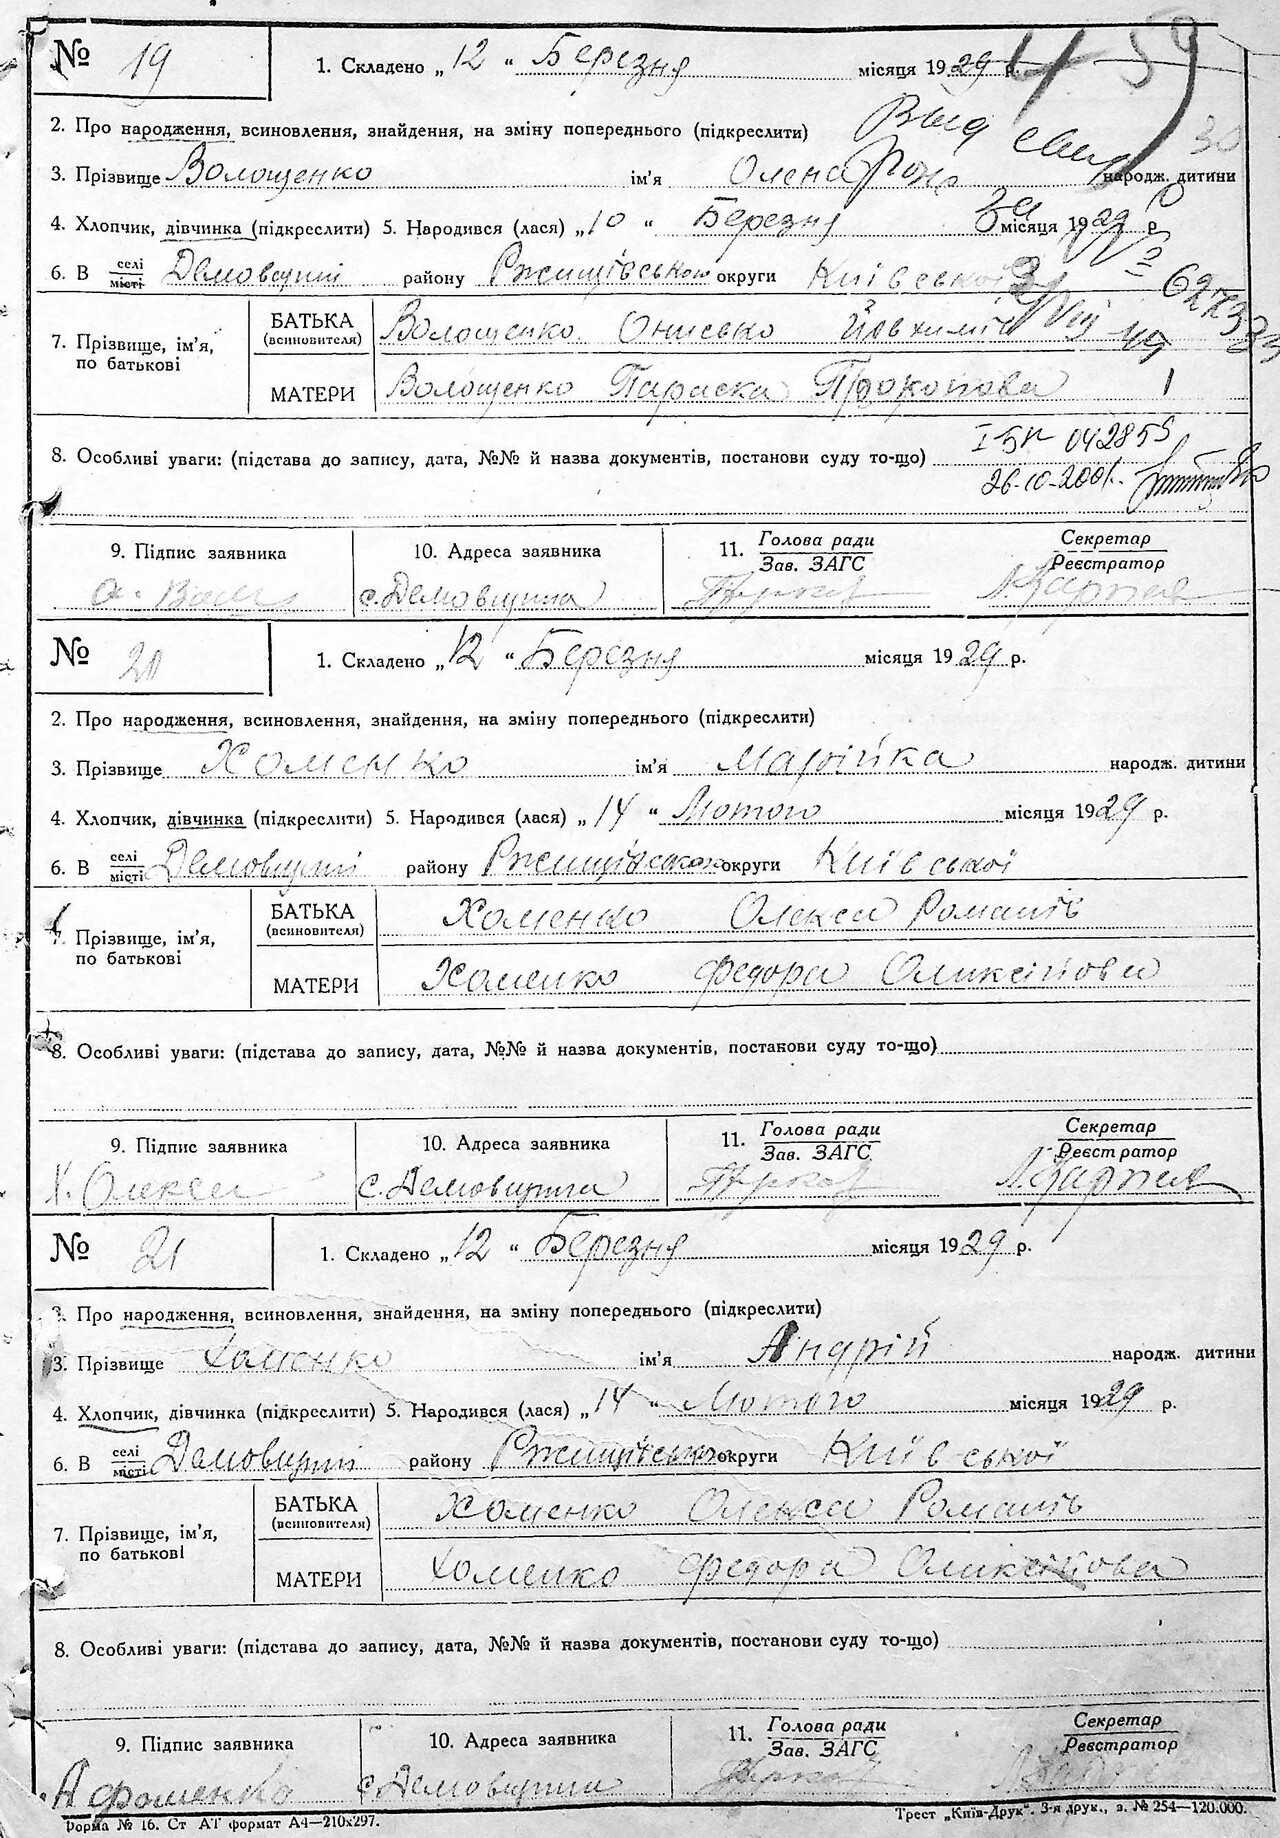 № 19 1. Складено „12“ Березня місяця 1929 р. 59
2. Про народження, всиновлення, знайдення, на зміну попереднього (підкреслити) Выд свид 30
3. Прізвище Волощенко ім'я Олена народж. дитини
4. Хлопчик, дівчинка (підкреслити) 5. Народився (лася) „10“ Березня місяця 1929 р
6. В селі/місті Демовщині району Ржищівського округи Київської
№
7. Прізвище, ім'я, по батькові
БАТЬКА (всиновителя) Волощенко Онисько
МАТЕРИ Волощенко Параска Прокопова
8. Особливі уваги: (підстава до запису, дата, №№ й назва документів, постанови суду то-що) І-БК 042855
26-10-2001.
9. Підпис заявника 10. Адреса заявника 11. Голова ради/Зав. ЗАГС Секретар/Реєстратор
с. Демовщина
№ 20 1. Складено „12“ Березня місяця 1929 р.
2. Про народження, всиновлення, знайдення, на зміну попереднього (підкреслити)
3. Прізвище Хоменко ім'я Марійка народж. дитини
4. Хлопчик, дівчинка (підкреслити) 5. Народився (лася) „14“ Лютого місяця 1929 р.
6. В селі/місті Демовщині району Ржищівського округи Київської
7. Прізвище, ім'я, по батькові
БАТЬКА (всиновителя) Хоменко Олекса Романів
МАТЕРИ Хоменко Федора Оликсійова
8. Особливі уваги: (підстава до запису, дата, №№ й назва документів, постанови суду то-що)
9. Підпис заявника 10. Адреса заявника 11. Голова ради/Зав. ЗАГС Секретар/Реєстратор
Х. Олекса с. Демовщина
№ 21 1. Складено „12“ Березня місяця 1929 р.
2. Про народження, всиновлення, знайдення, на зміну попереднього (підкреслити)
3. Прізвище Хоменко ім'я Андрій народж. дитини
4. Хлопчик, дівчинка (підкреслити) 5. Народився (лася) „14“ Лютого місяця 1929 р.
6. В селі/місті Демовщині району Ржищівського округи Київської
7. Прізвище, ім'я, по батькові
БАТЬКА (всиновителя) Хоменко Олекса Романів
МАТЕРИ Хоменко Федора Оликсійова
8. Особливі уваги: (підстава до запису, дата, №№ й назва документів, постанови суду то-що)
9. Підпис заявника 10. Адреса заявника 11. Голова ради/Зав. ЗАГС Секретар/Реєстратор
А Фоменко с. Демовщина
Форма № 16. Ст АТ формат А4—210х297. Трест „Київ-Друк“. 3-я друк., з. № 254—120.000.